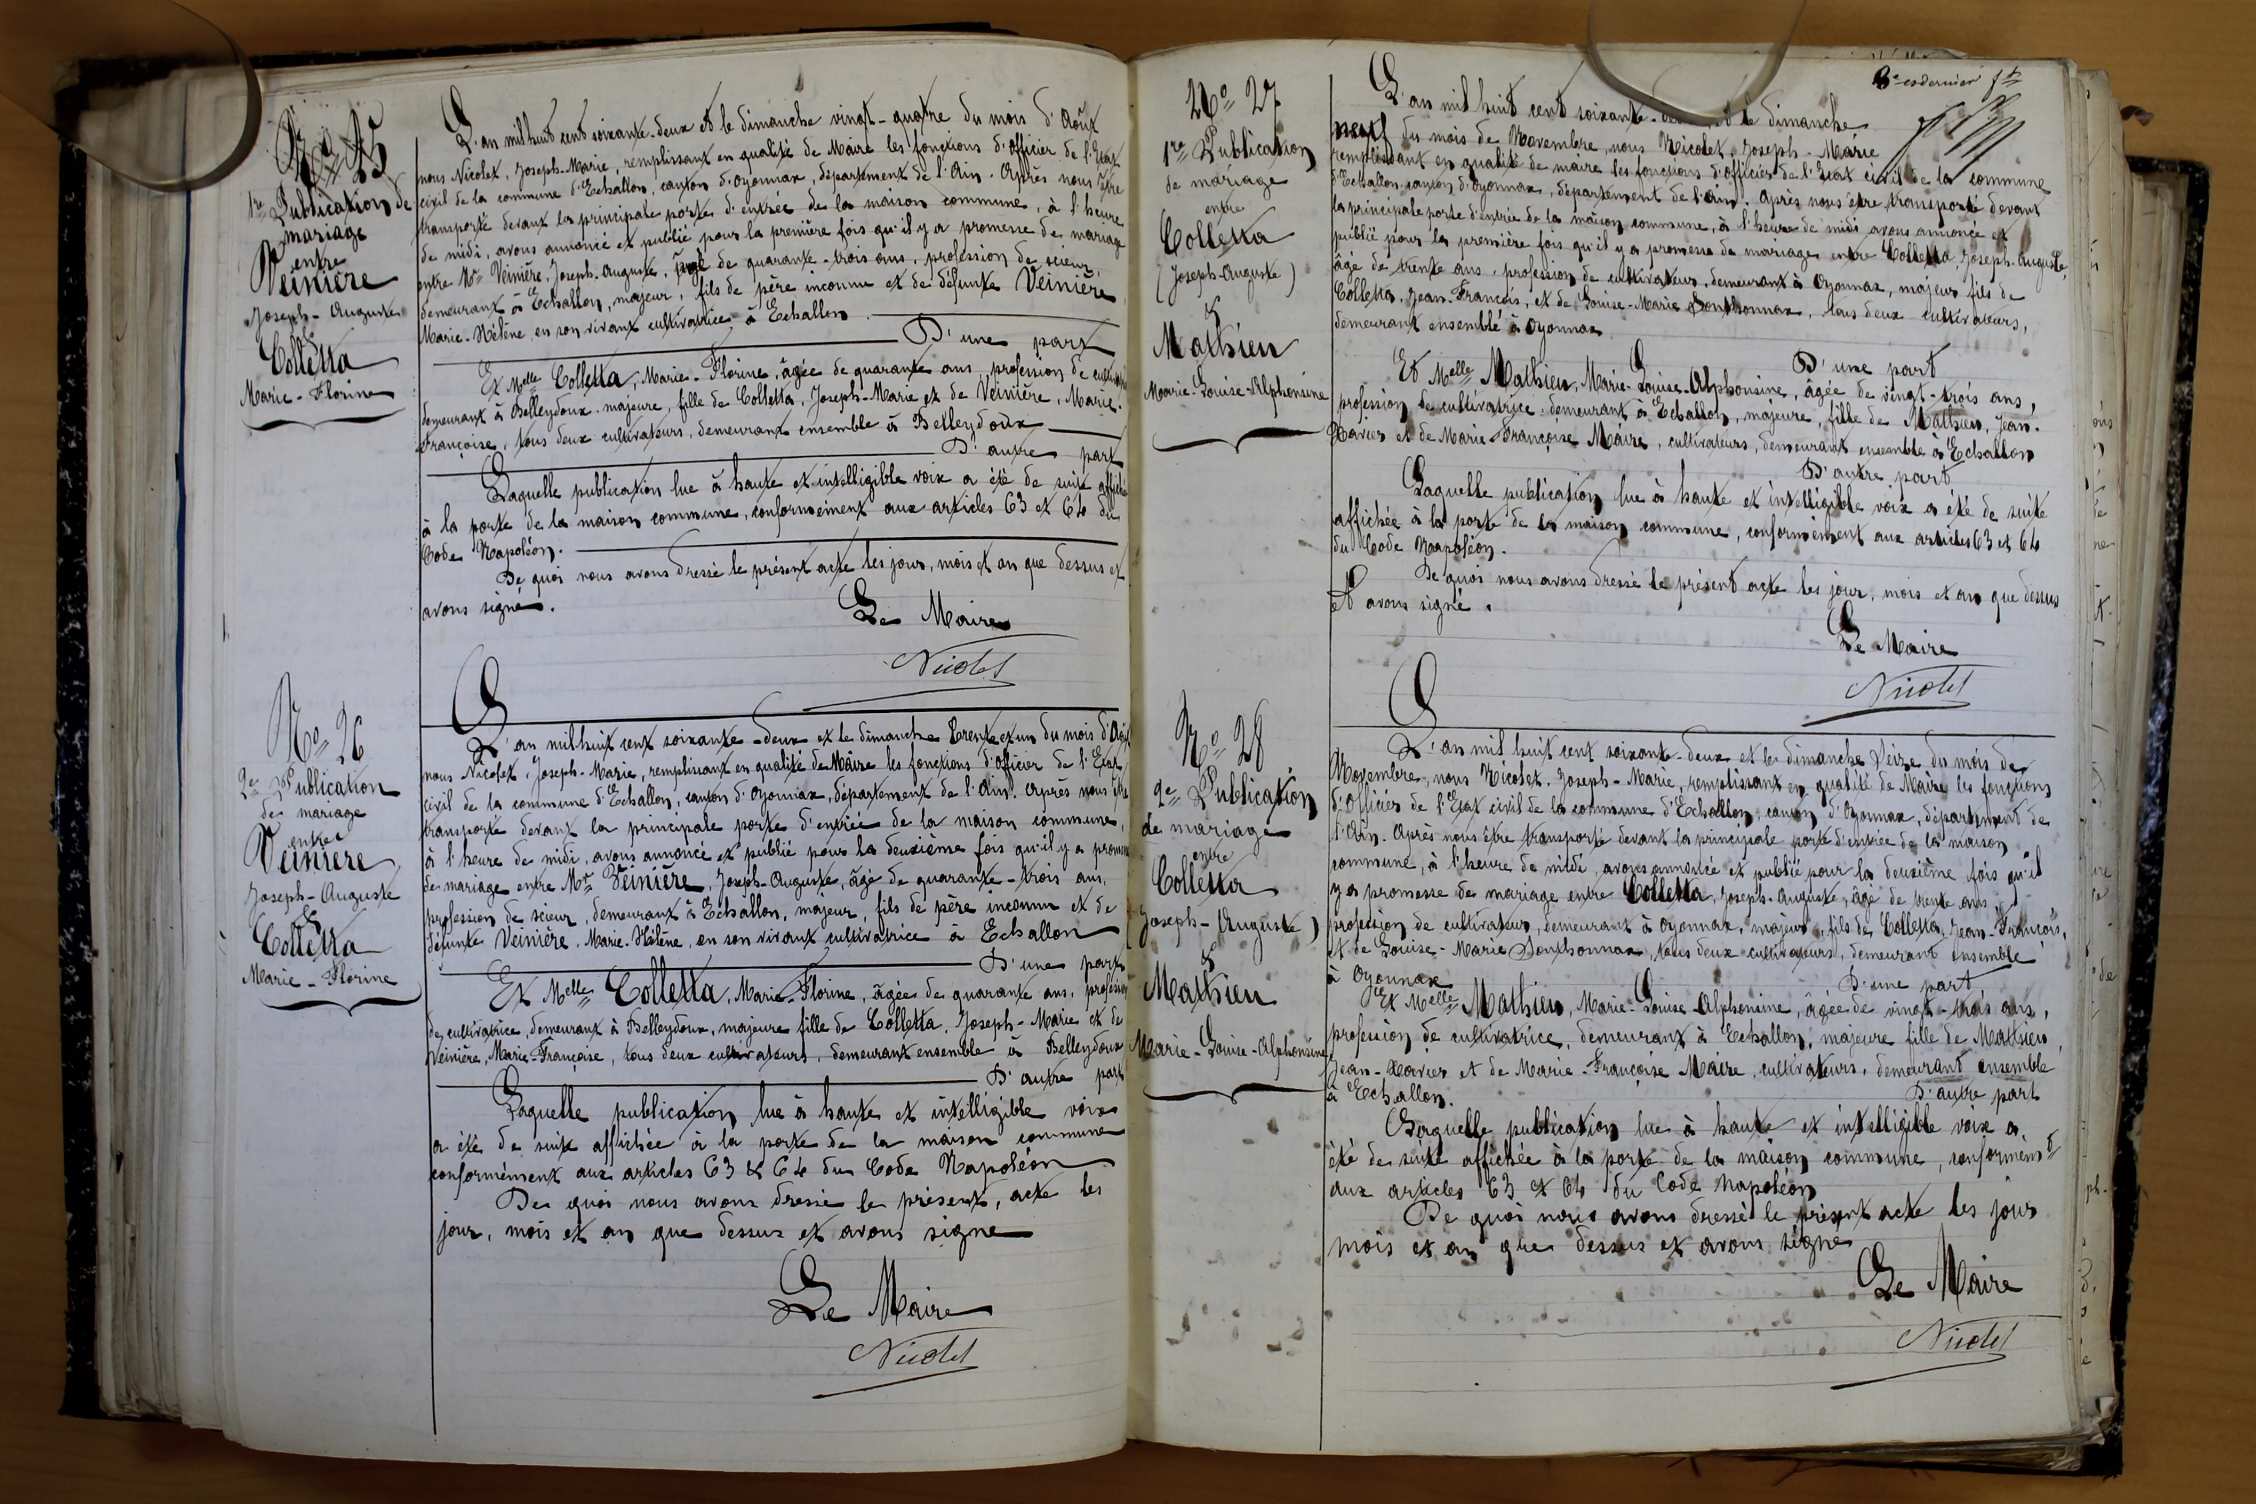 No 25
1re Publication de
mariage
entre
Veinière
Joseph-Auguste
&
Colletta
Marie-Florine
L'an mil huit cent soixante-deux et le dimanche vingt-quatre du mois d'Août
nous Nicolet, Joseph-Marie, remplissant en qualité de Maire les fonctions d'officier de l'Etat
civil de la commune d'Echallon, canton d'Oyonnax, département de l'Ain. Après nous être
transporté devant la principale porte d'entrée de la maison commune, à l'heure
de midi, avons annoncé et publié pour la première fois qu'il y a promesse de mariage
entre Mr Veinière, Joseph-Auguste, âgé de quarante-trois ans, profession de scieur,
demeurant à Echallon, majeur, fils de père inconnu et de défunte Veinière
Marie-Hélène en son vivant cultivatrice à Echallon
D'une part
Et Melle Colletta, Marie-Florine, âgée de quarante ans, profession de
demeurant à Belleydoux, majeure, fille de Colletta, Joseph-Marie et de Veinière, Marie-
Françoise, tous deux cultivateurs, demeurant ensemble à Belleydoux
D'autre part
Laquelle publication lue à haute et intelligible voix a été de suite affichée
à la porte de la maison commune, conformément aux articles 63 et 64 du
Code Napoléon.
De quoi nous avons dressé le présent acte les jour, mois et an que dessus et
avons signé.
Le Maire
Nicolet
No 26
2e Publication
de mariage
entre
Veinière
Joseph-Auguste
&
Colletta
Marie-Florine
L'an mil huit cent soixante-deux et le dimanche trente et un du mois d'Août
nous Nicolet, Joseph-Marie, remplissant en qualité de Maire les fonctions d'officier de l'Etat
civil de la commune d'Echallon, canton d'Oyonnax, département de l'Ain. Après nous être
transporté devant la principale porte d'entrée de la maison commune,
à l'heure de midi, avons annoncé et publié pour la deuxième fois qu'il y a promesse
de mariage entre Mr Veinière, Joseph-Auguste, âgé de quarante-trois ans,
profession de scieur, demeurant à Echallon, majeur, fils de père inconnu et de
défunte Veinière, Marie-Hélène, en son vivant cultivatrice à Echallon
D'une part
Et Melle Colletta, Marie-Florine, âgée de quarante ans, profession
de cultivatrice, demeurant à Belleydoux, majeure fille de Colletta, Joseph-Marie et de
Veinière, Marie-Françoise, tous deux cultivateurs, demeurant ensemble à Belleydoux
D'autre part
Laquelle publication lue à haute et intelligible voix
a été de suite affichée à la porte de la maison commune
conformément aux articles 63 & 64 du Code Napoléon
De quoi nous avons dressé le présent, acte les
jour, mois et an que dessus et avons signé
Le Maire
Nicolet
No 27
1re Publication
de mariage
entre
Colletta
(Joseph-Auguste)
&
Mathieu
Marie-Louise-Alphonsine
L'an mil huit cent soixante-deux et le dimanche
neuf du mois de Novembre, nous Nicolet, Joseph-Marie
remplissant en qualité de maire les fonctions d'officier de l'Etat civil de la commune
d'Echallon, canton d'Oyonnax, département de l'Ain. Après nous être transporté devant
la principale porte d'entrée de la maison commune, à l'heure de midi avons annoncé et
publié pour la première fois qu'il y a promesse de mariage entre Colletta, Joseph-Auguste,
âgé de trente ans, profession de cultivateur, demeurant à Oyonnax, majeur fils de
Colletta, Jean-François, et de Louise-Marie Sonthonnax, tous deux cultivateurs,
demeurant ensemble à Oyonnax
D'une part
Et Melle Mathieu, Marie-Louise-Alphonsine, âgée de vingt-trois ans,
profession de cultivatrice demeurant à Echallon, majeure, fille de Mathieu, Jean-
Xavier et de Marie-Françoise Maire, cultivateurs, demeurant ensemble à Echallon
D'autre part
Laquelle publication lue à haute et intelligible voix a été de suite
affichée à la porte de la maison commune, conformément aux articles 63 et 64
du Code Napoléon.
De quoi nous avons dressé le présent acte les jour, mois et an que dessus
et avons signé.
Le Maire
Nicolet
No 28
2e Publication
de mariage
entre
Colletta
(Joseph-Auguste)
&
Mathieu
Marie-Louise-Alphonsine
L'an mil huit cent soixante-deux et le dimanche seize du mois de
Novembre, nous Nicolet, Joseph-Marie, remplissant en qualité de Maire les fonctions
d'Officier de l'Etat civil de la commune d'Echallon, canton d'Oyonnax, département de
l'Ain. Après nous être transporté devant la principale porte d'entrée de la maison
commune, à l'heure de midi, avons annoncé et publié pour la deuxième fois qu'il
y a promesse de mariage entre Colletta, Joseph-Auguste, âgé de trente ans,
profession de cultivateur, demeurant à Oyonnax, majeur, fils de Colletta, Jean-François,
et de Louise-Marie Sonthonnax, tous deux cultivateurs, demeurant ensemble
à Oyonnax
D'une part,
Et Melle Mathieu, Marie-Louise Alphonsine, âgée de vingt-trois ans,
profession de cultivatrice, demeurant à Echallon, majeure fille de Mathieu,
Jean-Xavier et de Marie-Françoise Maire, cultivateurs, demeurant ensemble
à Echallon.
D'autre part
Laquelle publication lue à haute et intelligible voix a
été de suite affichée à la porte de la maison commune, conformémt
aux articles 63 et 64 du Code Napoléon
De quoi nous avons dressé le présent acte les jour
mois et an que dessus et avons signé
Le Maire
Nicolet